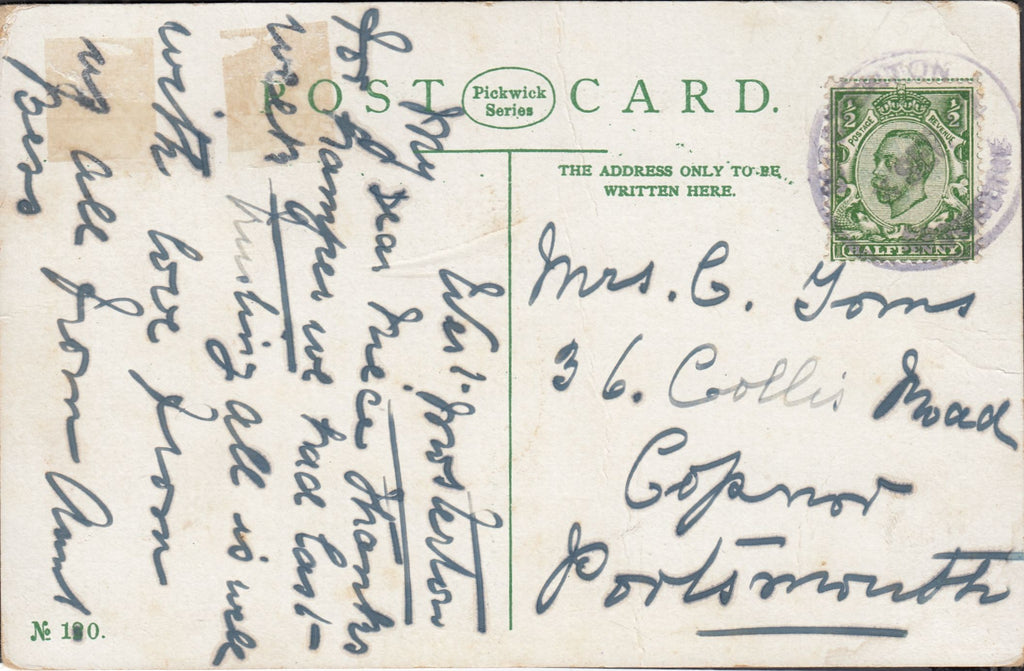 POST CARD.
Pickwick
Series
THE ADDRESS ONLY TO BE
WRITTEN HERE.
½ ½
POSTAGE REVENUE
HALFPENNY
West Gosterton
My Dear Niece Thanks
for Hamper we had last
week
hushing all is well
with love from
us all from Aunt
Bess
Mrs. C. Toms
36. Collis Road
Copnor
Portsmouth
№ 190.